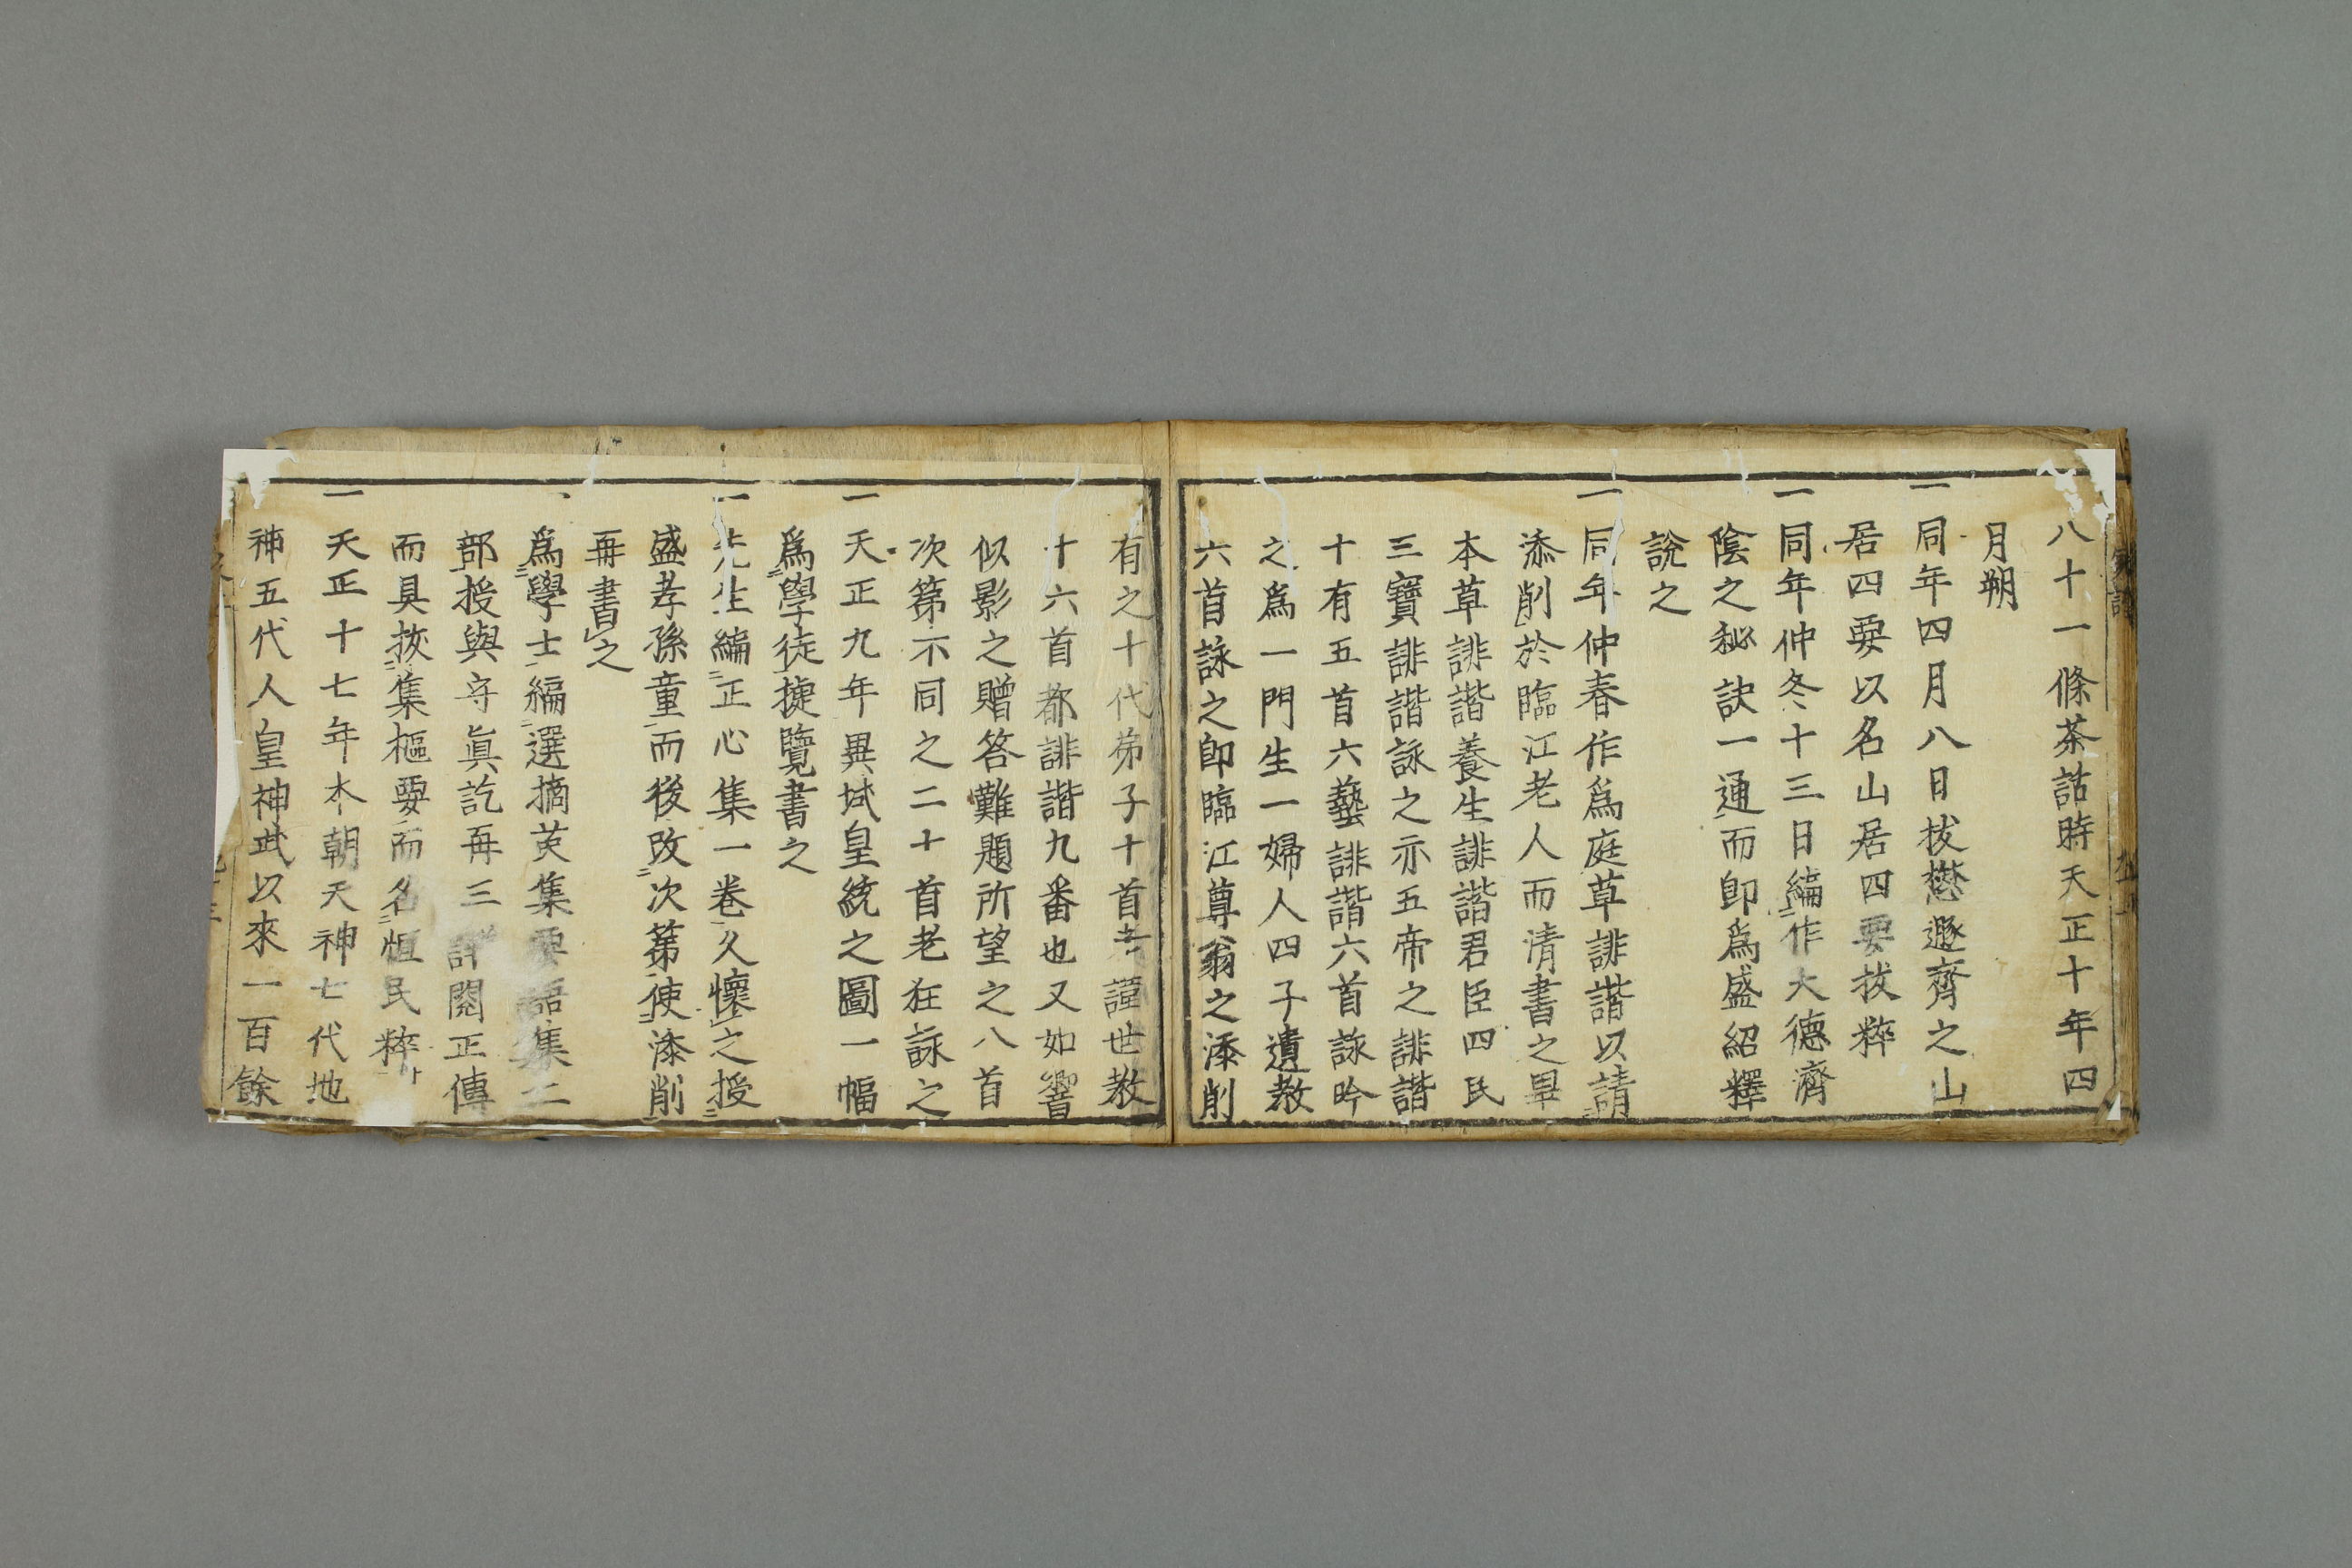 八十一條茶詁時天正十年四
月朔
一同年四月八日拔懋遯齊之山
居四要以名山居四要拔粹
一同年仲冬十三日編作大德濟
陰之秘訣一通而卽爲盛紹釋
說之
一同年仲春作爲庭草誹諧以請
添削於臨江老人而清書之畢
本草誹諧養生誹諧君臣四民
三寶誹諧詠之亦五帝之誹諧
十有五首六藝誹諧六首詠吟
之爲一門生一婦人四子遺教
六首詠之卽臨江尊翁之添削
有之十代弟子十首 謹世教
十六首都誹諧九番也又如響
似影之贈答難題所望之八首
次第不同之二十首老狂詠之
一天正九年異域皇統之圖一幅
爲學徒捷覽書之
一先生編正心集一卷久懷之授
盛孝孫童而後改次第使添削
再書之
一爲學士編選摘英集要語集二
部授與守眞訖再三詳閱正傳
而具拔集樞要而名恒民粹
一天正十七年本朝天神七代地
神五代人皇神武以來一百餘